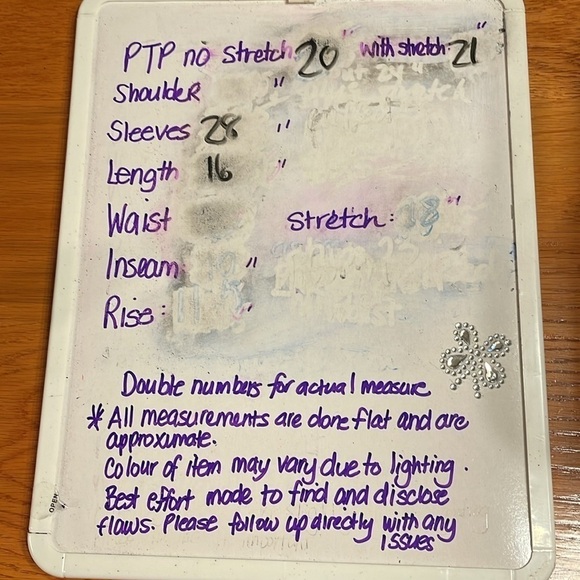 PTP no stretch: 20" with stretch: 21"
Shoulder "
Sleeves 28 "
Length 16 "
Waist Stretch: "
Inseam "
Rise: "
Double numbers for actual measure
* All measurements are done flat and are
approximate.
Colour of item may vary due to lighting.
Best effort made to find and disclose
flaws. Please follow up directly with any
issues
OPEN